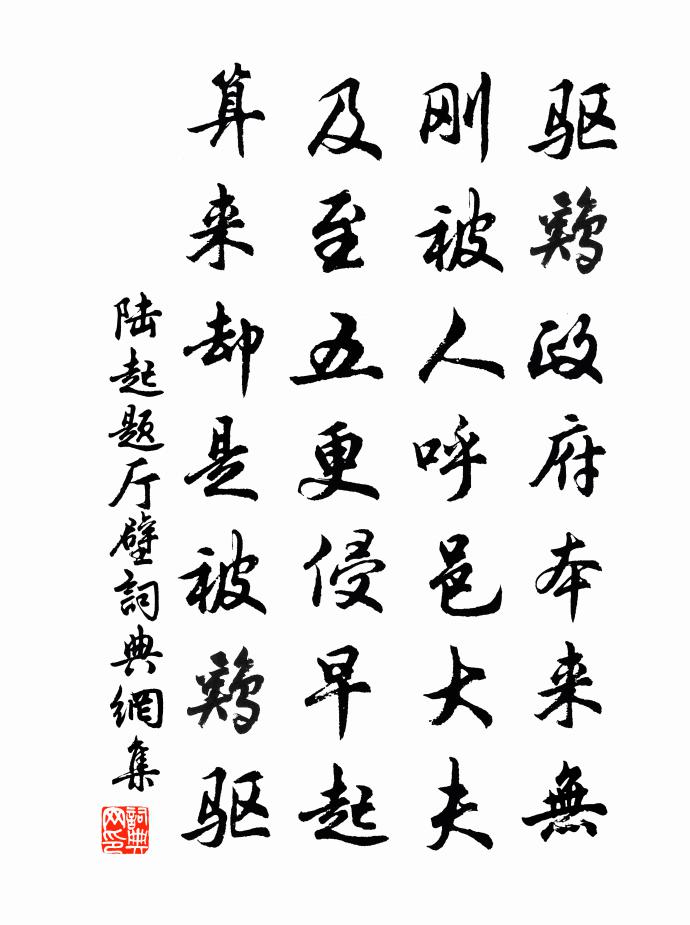 驱鷄政府本来無
刚被人呼邑大夫
及至五更侵早起
算来却是被鷄驱
陆起题厅壁詞典網集
詞典网印